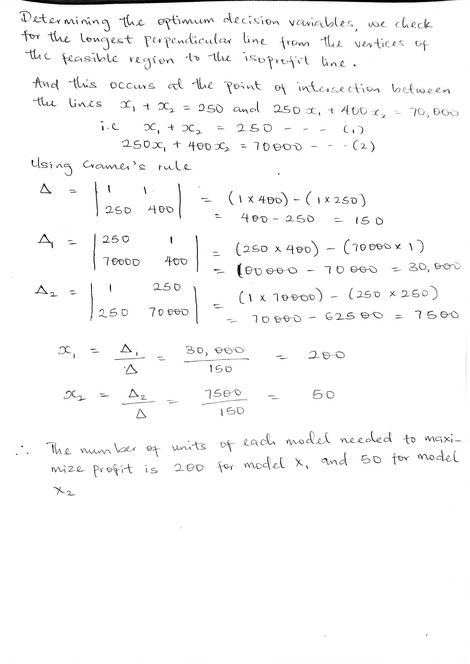 Determining the optimum decision variables, we check
for the longest perpendicular line from the vertices of
the feasible region to the isoprofit line.
And this occurs at the point of intersection between
the lines x₁ + x₂ = 250 and 250x₁ + 400x₂ = 70,000
i.e x₁ + x₂ = 250 - - - (1)
250x₁ + 400x₂ = 70000 - - - (2)
Using Cramer's rule
Δ = | 1 1 | = (1 x 400) - (1 x 250)
| 250 400 | = 400 - 250 = 150
Δ₁ = | 250 1 | = (250 x 400) - (70000 x 1)
| 70000 400 | = 100000 - 70000 = 30,000
Δ₂ = | 1 250 | = (1 x 70000) - (250 x 250)
| 250 70000 | = 70000 - 62500 = 7500
x₁ = Δ₁/Δ = 30,000/150 = 200
x₂ = Δ₂/Δ = 7500/150 = 50
∴ The number of units of each model needed to maxi-
mize profit is 200 for model X₁ and 50 for model
X₂